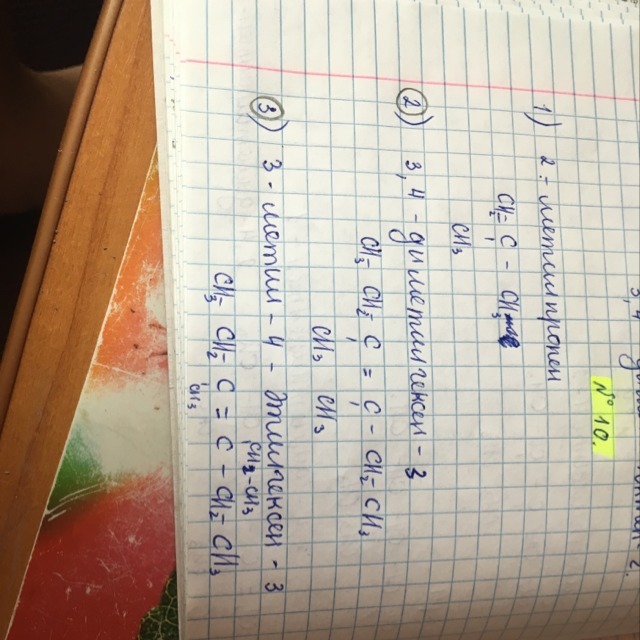 3,4
2.
№ 10.
1) 2 - метилпропен
CH₂= C - CH₃
CH₃
2) 3,4 - диметилгексен - 3
CH₃- CH₂- C = C - CH₂- CH₃
CH₃ CH₃
3) 3 - метил - 4 - этилгексен - 3
CH₂-CH₃
CH₃- CH₂- C = C - CH₂- CH₃
CH₃